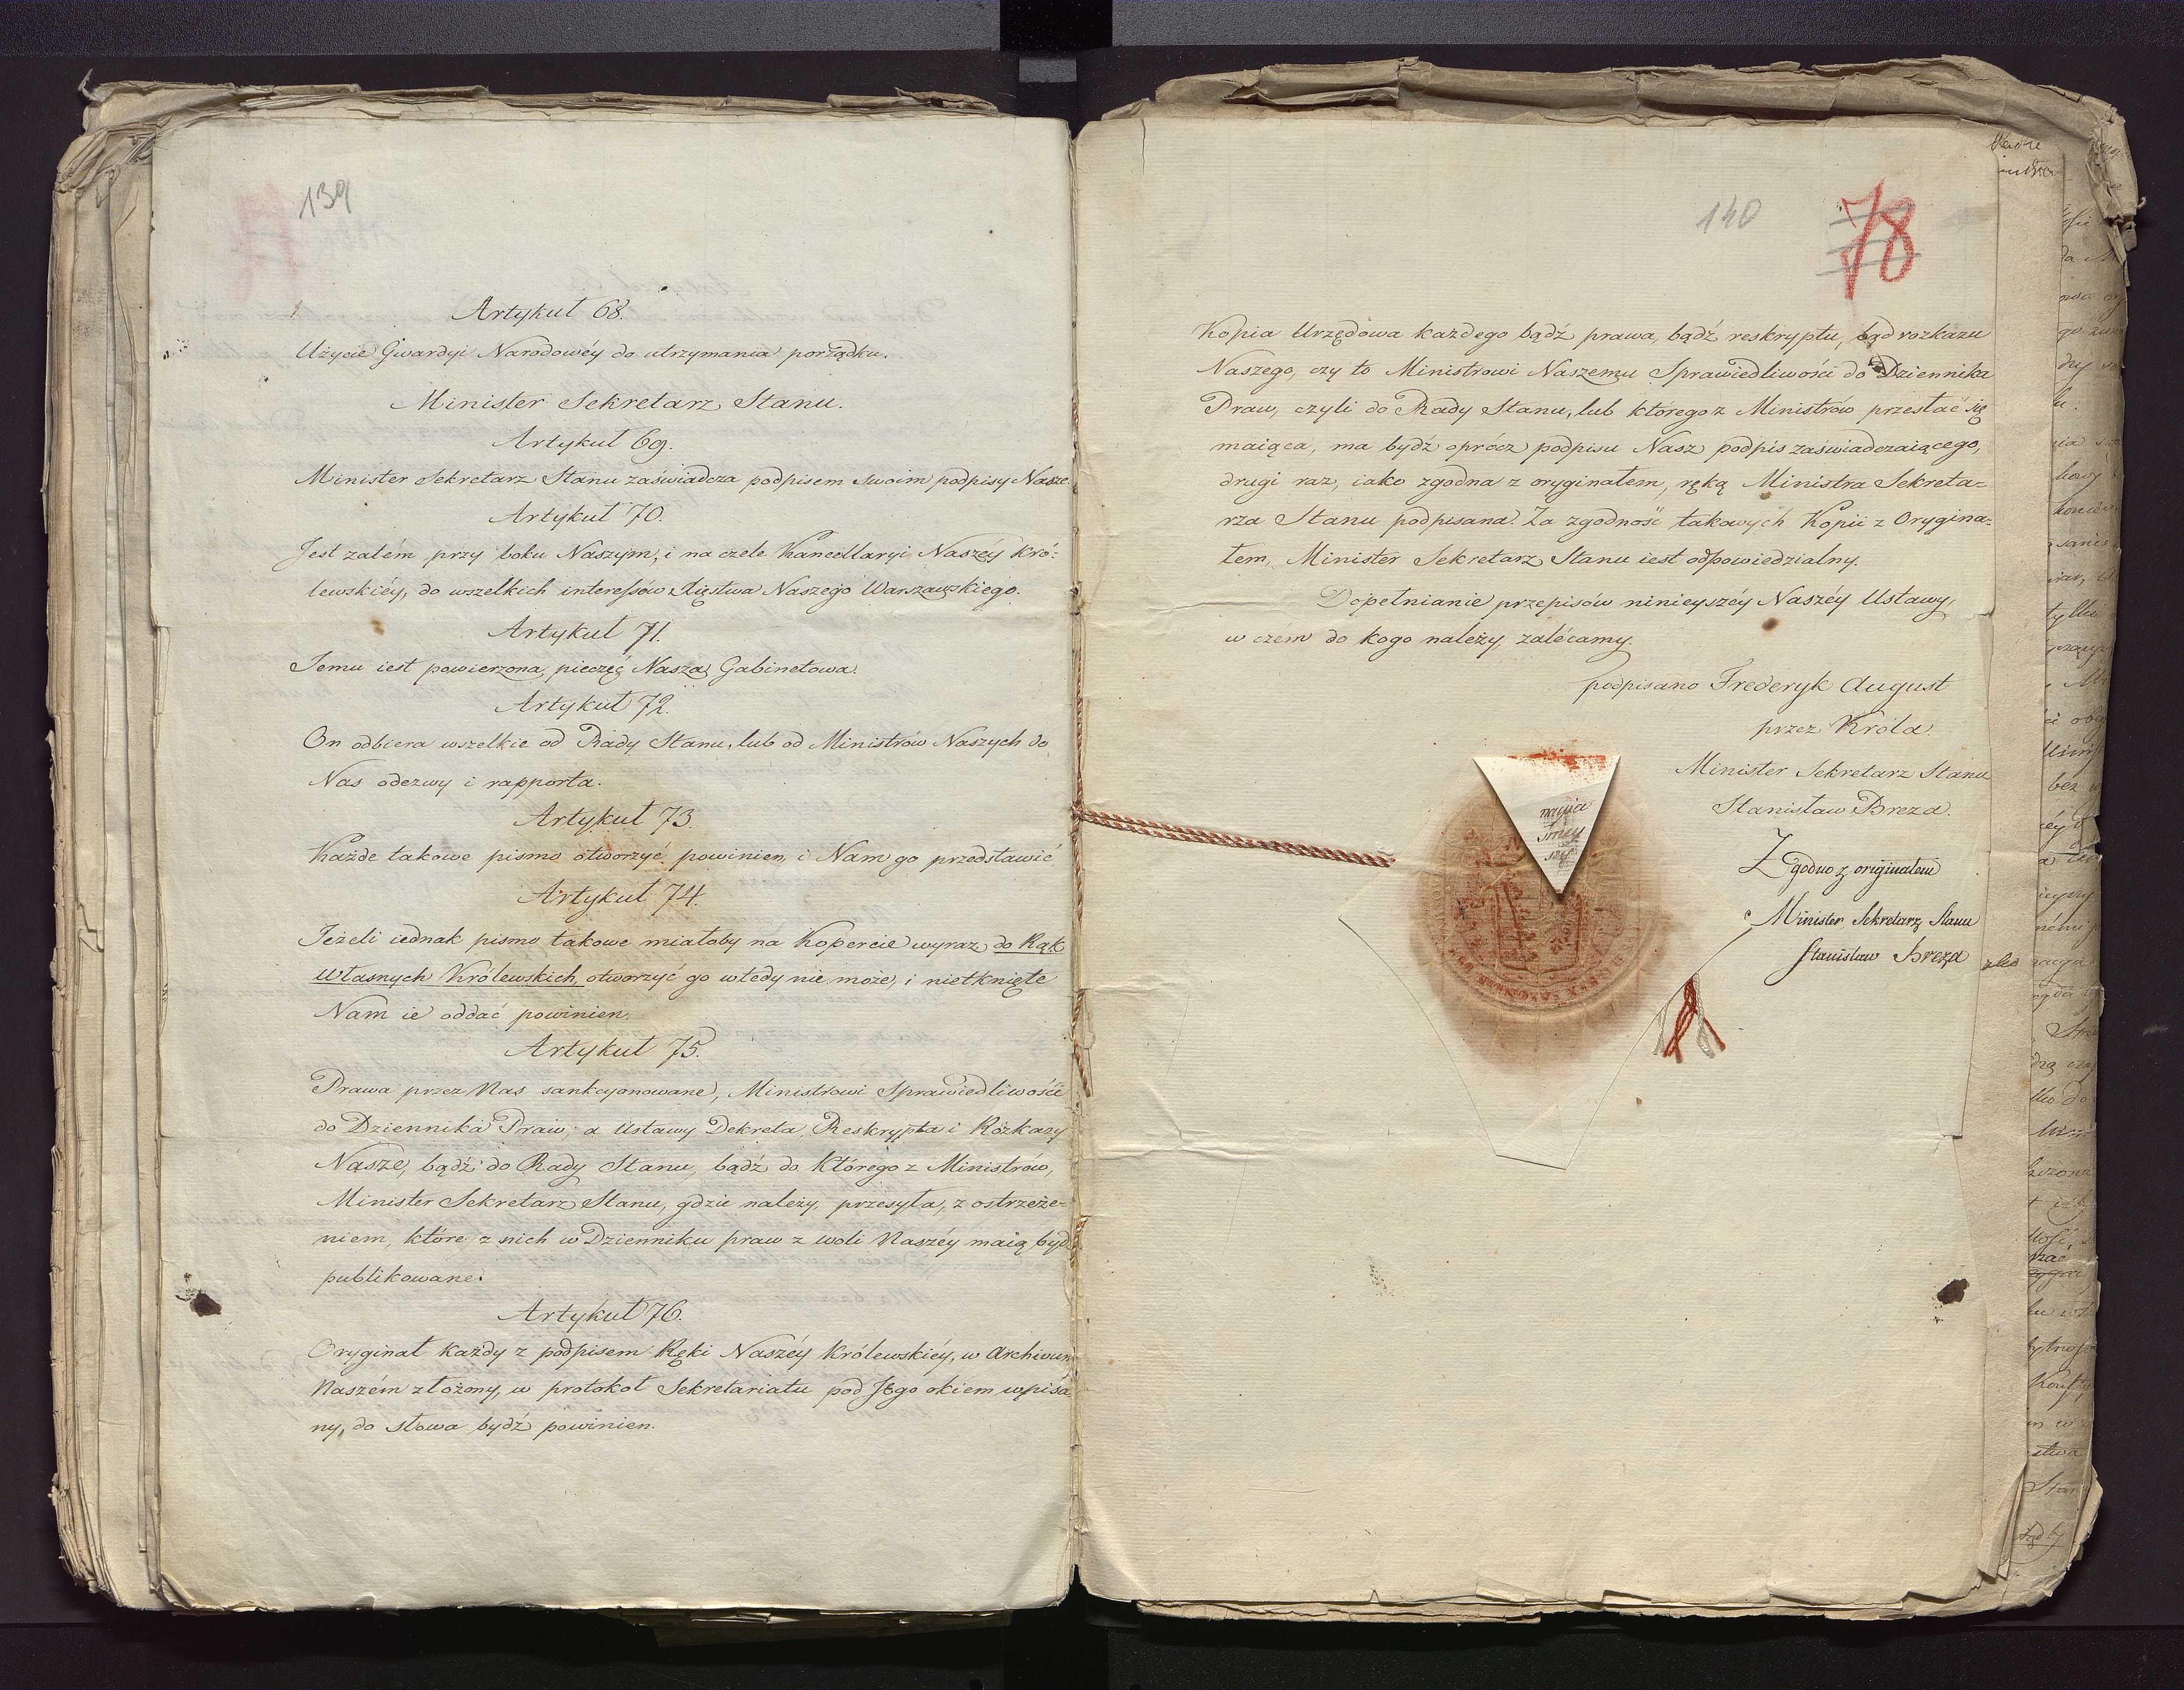 139
Artykuł 68.
Użycie Gwardyi Narodowéy do utrzymania porządku.
Minister Sekretarz Stanu.
Artykuł 69.
Minister Sekretarz Stanu zaświadcza podpisem swoim podpisy Nasze.
Artykuł 70.
Jest zatém przy boku Naszym, i na czele Kancellaryi Naszéy Kró-
lewskiéy, do wszelkich interessów Xięstwa Naszego Warszawskiego.
Artykuł 71.
Jemu iest powierzona pieczęć Nasza Gabinetowa.
Artykuł 72.
On odbiera wszelkie od Rady Stanu, lub od Ministrów Naszych do
Nas odezwy i rapporta.
Artykuł 73.
Każde takowe pismo otworzyć powinien, i Nam go przedstawić
Artykuł 74.
Jeżeli iednak pismo takowe miałoby na Kopercie wyraz, do Rąk
Własnych Królewskich, otworzyć go wtedy nie może, i nietknięte
Nam ie oddać powinien.
Artykuł 75.
Prawa przez Nas sankcyonowane, Ministrowi Sprawiedliwości
do Dziennika Praw; a Ustawy Dekreta, Reskrypta i Rozkazy
Nasze, bądź do Rady Stanu, bądź do Którego z Ministrów,
Minister Sekretarz Stanu, gdzie należy, przesyła, z ostrzeże-
niem, które z nich w Dzienniku praw z woli Naszéy maią bydź
publikowane.
Artykuł 76.
Oryginał każdy z podpisem Ręki Naszéy Królewskiéy, w Archivum
Naszém złożony, w protokoł Sekretariatu pod Jego okiem wpisa
ny, do słowa bydź powinien.
140
78
Kopia Urzędowa każdego bądź prawa, bądź reskryptu, bąd rozkazu
Naszego, czy to Ministrowi Naszemu Sprawiedliwości do Dziennika
Praw, czyli do Rady Stanu, lub którego z Ministrów przesłać się
maiąca, ma bydź oprócz podpisu Nasz podpis zaświadczaiącego,
drugi raz, iako zgodna z oryginałem, ręką Ministra Sekreta-
rza Stanu podpisana. Za zgodność takowych Kopii z Orygina-
łem, Minister Sekretarz Stanu iest odpowiedzialny.
Dopełnianie przepisów ninieyszéy Naszéy Ustawy,
w czém do kogo należy, zalécamy.
podpisano Frederyk August
przez Króla
Minister Sekretarz Stanu
Stanisław Breza.
Zgodno z originałem
Minister Sekretarz Stanu
Stanisław Breza